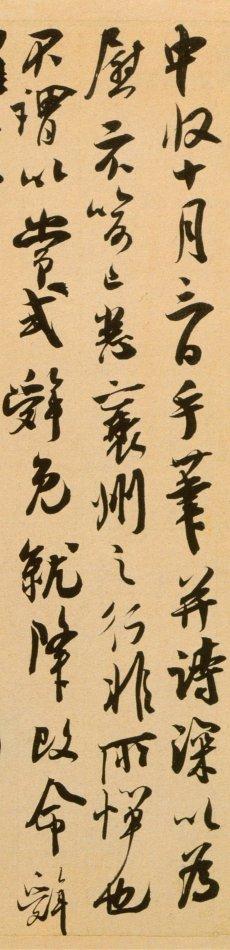 中収十月三日手筆并诗深以為
慰示諭已悉襄州之行非所憚也
不謂以嘗式辭免就降改命辭